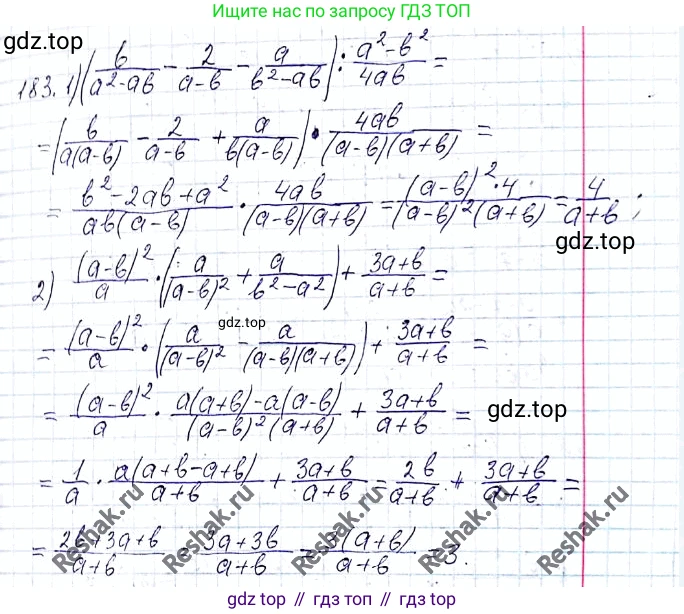 Ищите нас по запросу ГДЗ ТОП
gdz.top
183. 1) (b/(a²-ab) - 2/(a-b) - a/(b²-ab)) : (a²-b²)/(4ab) =
= (b/(a(a-b)) - 2/(a-b) + a/(b(a-b))) · 4ab/((a-b)(a+b)) =
= (b²-2ab+a²)/(ab(a-b)) · 4ab/((a-b)(a+b)) = ((a-b)²·4)/((a-b)²(a+b)) = 4/(a+b) ;
gdz.top
2) (a-b)²/a · (a/(a-b)² + a/(b²-a²)) + (3a+b)/(a+b) =
gdz.top
= (a-b)²/a · (a/(a-b)² - a/((a-b)(a+b))) + (3a+b)/(a+b) =
= (a-b)²/a · (a(a+b)-a(a-b))/((a-b)²(a+b)) + (3a+b)/(a+b) =
gdz.top
= 1/a · a(a+b-a+b)/(a+b) + (3a+b)/(a+b) = 2b/(a+b) + (3a+b)/(a+b) =
= (2b+3a+b)/(a+b) = (3a+3b)/(a+b) = 3(a+b)/(a+b) = 3.
Reshak.ru
Reshak.ru
Reshak.ru
Reshak.ru
gdz.top // гдз топ // gdz.top